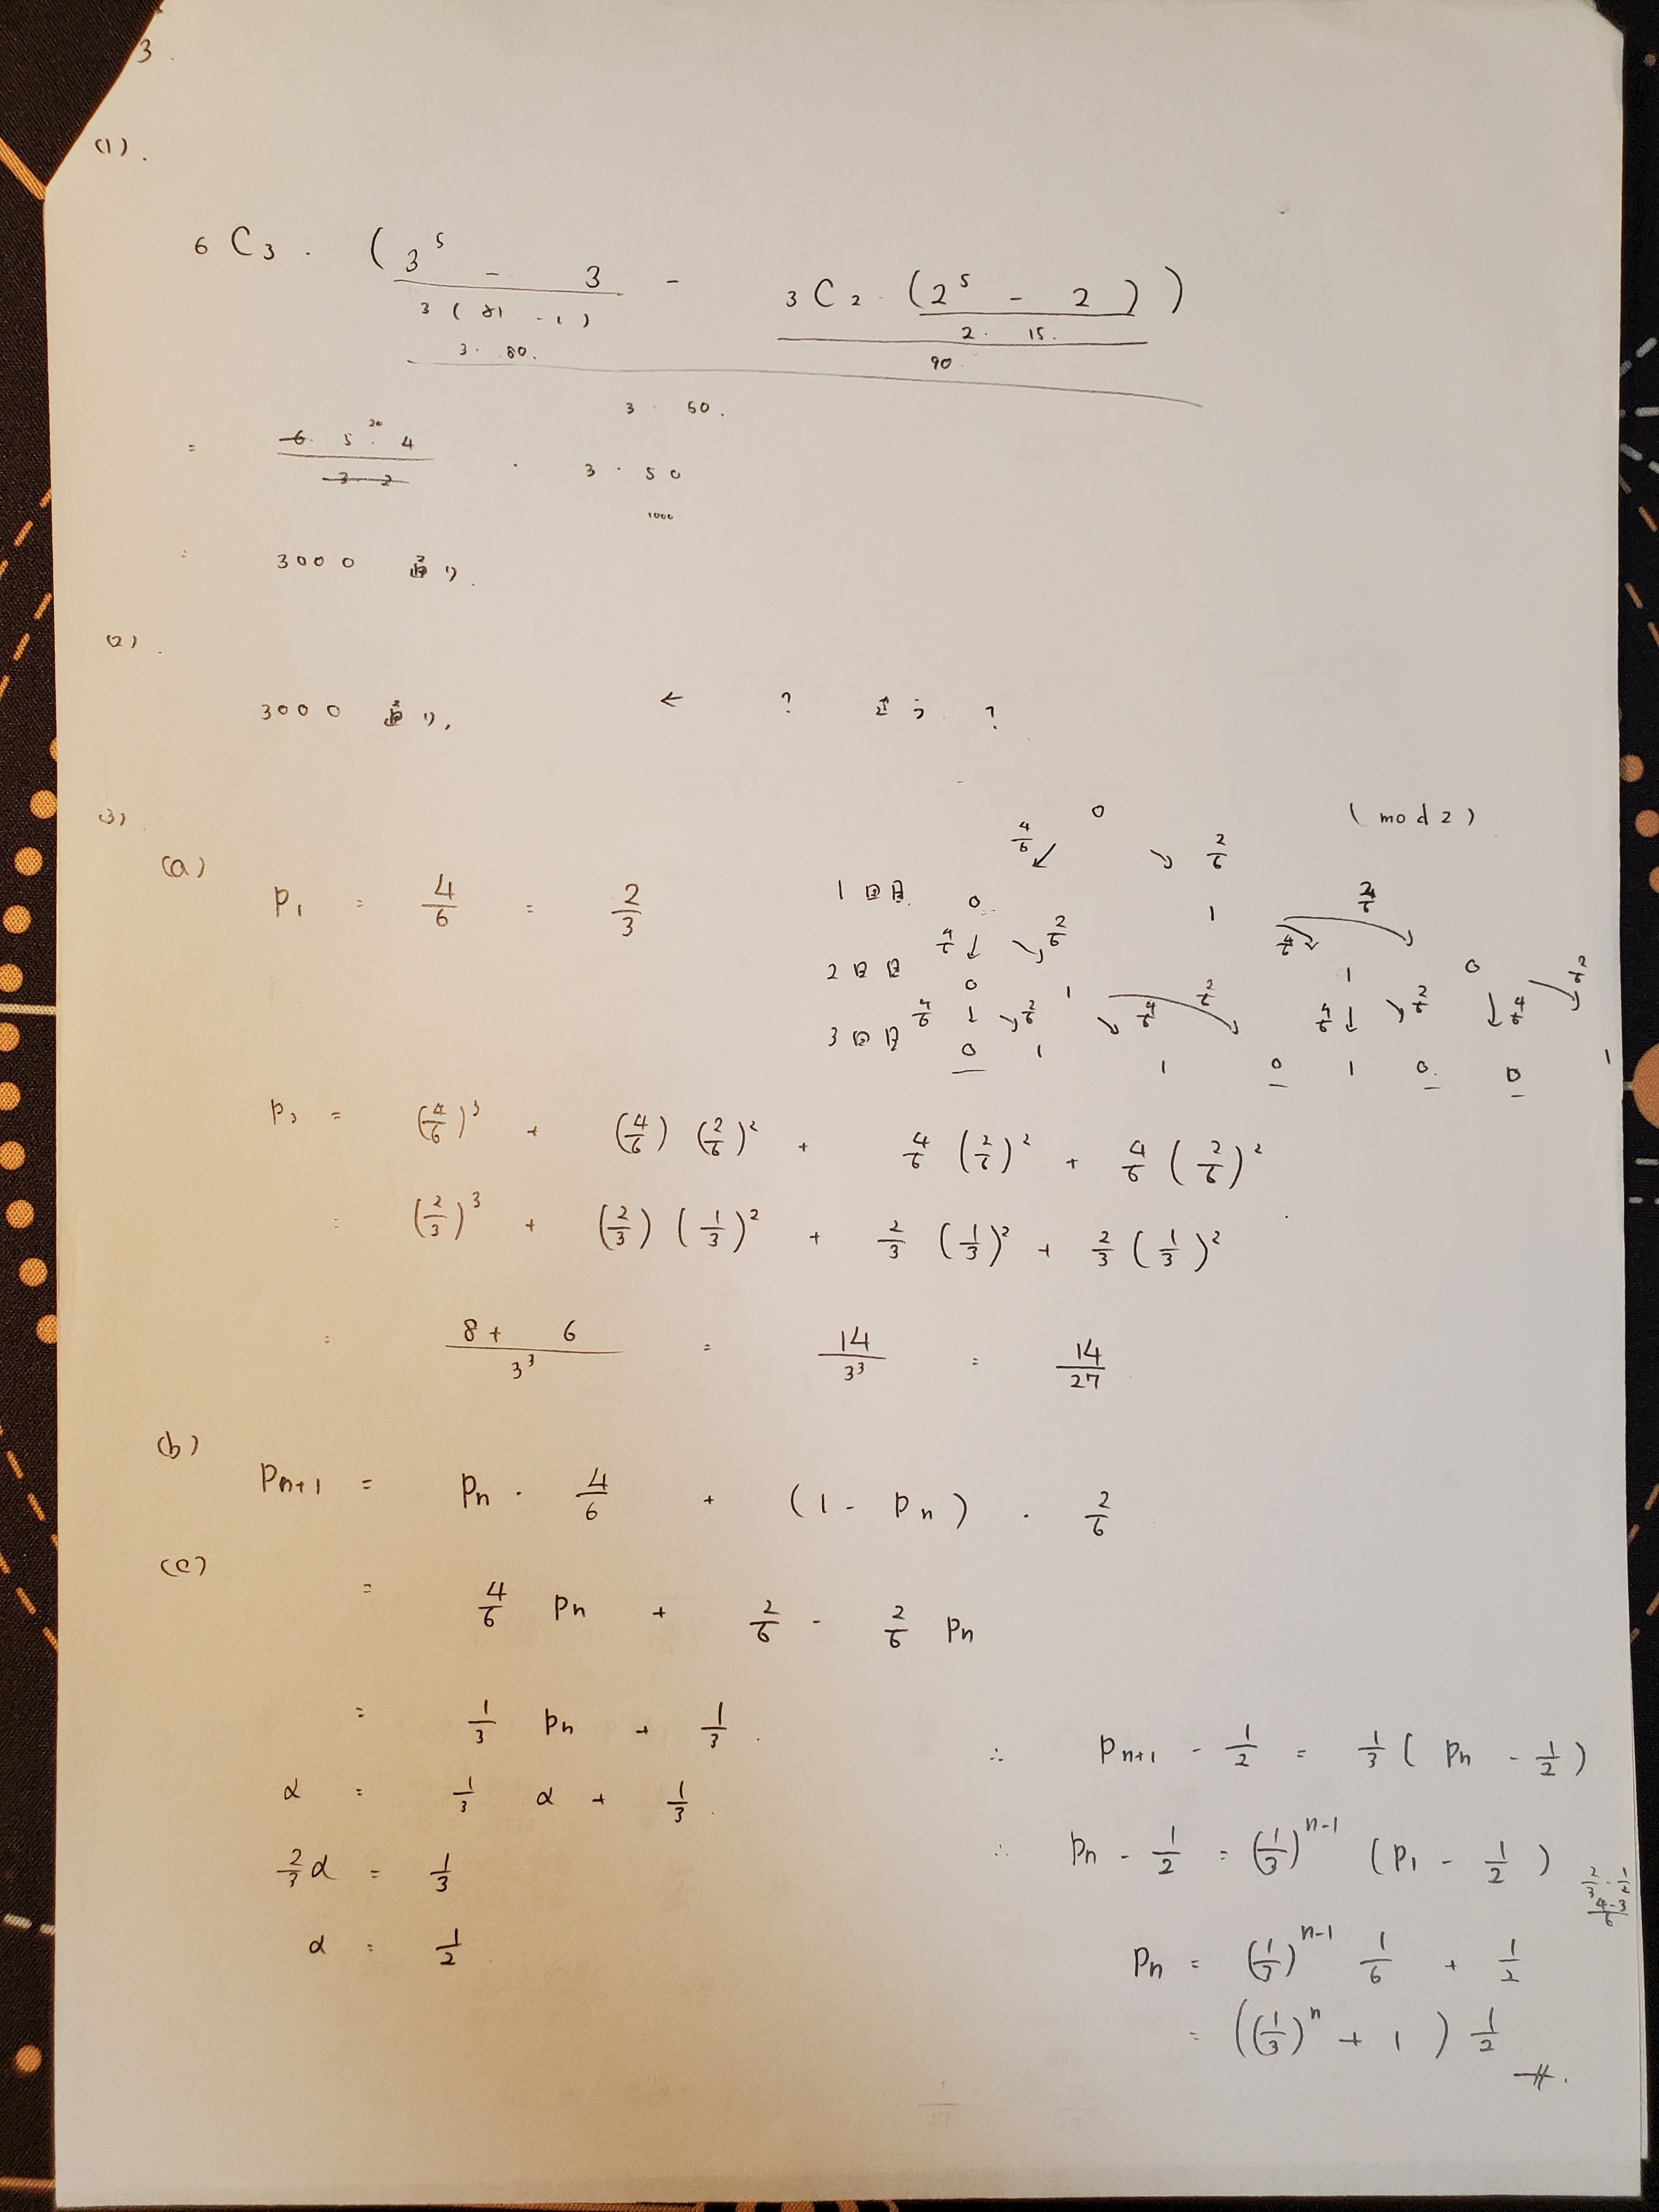 3.
(1).
6C3 · (3^5 - 3 - 3C2 · (2^5 - 2))
3(81-1) 2. 15.
3. 80. 90.
3 · 50.
= 6. 5. 4 / 3 2 20 · 3 · 50
1000
= 3000 通り.
(2).
3000 通り. ← ?
(3).
(a) p1 = 4/6 = 2/3
0 (mod 2)
4/6 ↙ ↘ 2/6
1回目. 0 1 2/6
4/6 ↓ ↘ 2/6 4/6 ↘
2回目 0 1 2/6 1 0 2/6
4/6 ↓ ↘ 2/6 ↘ 4/6 4/6 ↓ ↘ 2/6 ↓ 4/6
3回目 0 1 1 0 1 0. 0 1
p3 = (4/6)^3 + (4/6)(2/6)^2 + 4/6(2/6)^2 + 4/6(2/6)^2
= (2/3)^3 + (2/3)(1/3)^2 + 2/3(1/3)^2 + 2/3(1/3)^2
= 8+6 / 3^3 = 14/3^3 = 14/27
(b)
pn+1 = pn · 4/6 + (1 - pn) · 2/6
(c)
= 4/6 pn + 2/6 - 2/6 pn
= 1/3 pn + 1/3.
α = 1/3 α + 1/3.
2/3 α = 1/3
α = 1/2
∴ pn+1 - 1/2 = 1/3 (pn - 1/2)
∴ pn - 1/2 = (1/3)^n-1 (p1 - 1/2)
2/3 - 1/2
4-3/6
pn = (1/3)^n-1 1/6 + 1/2
= ((1/3)^n + 1) 1/2